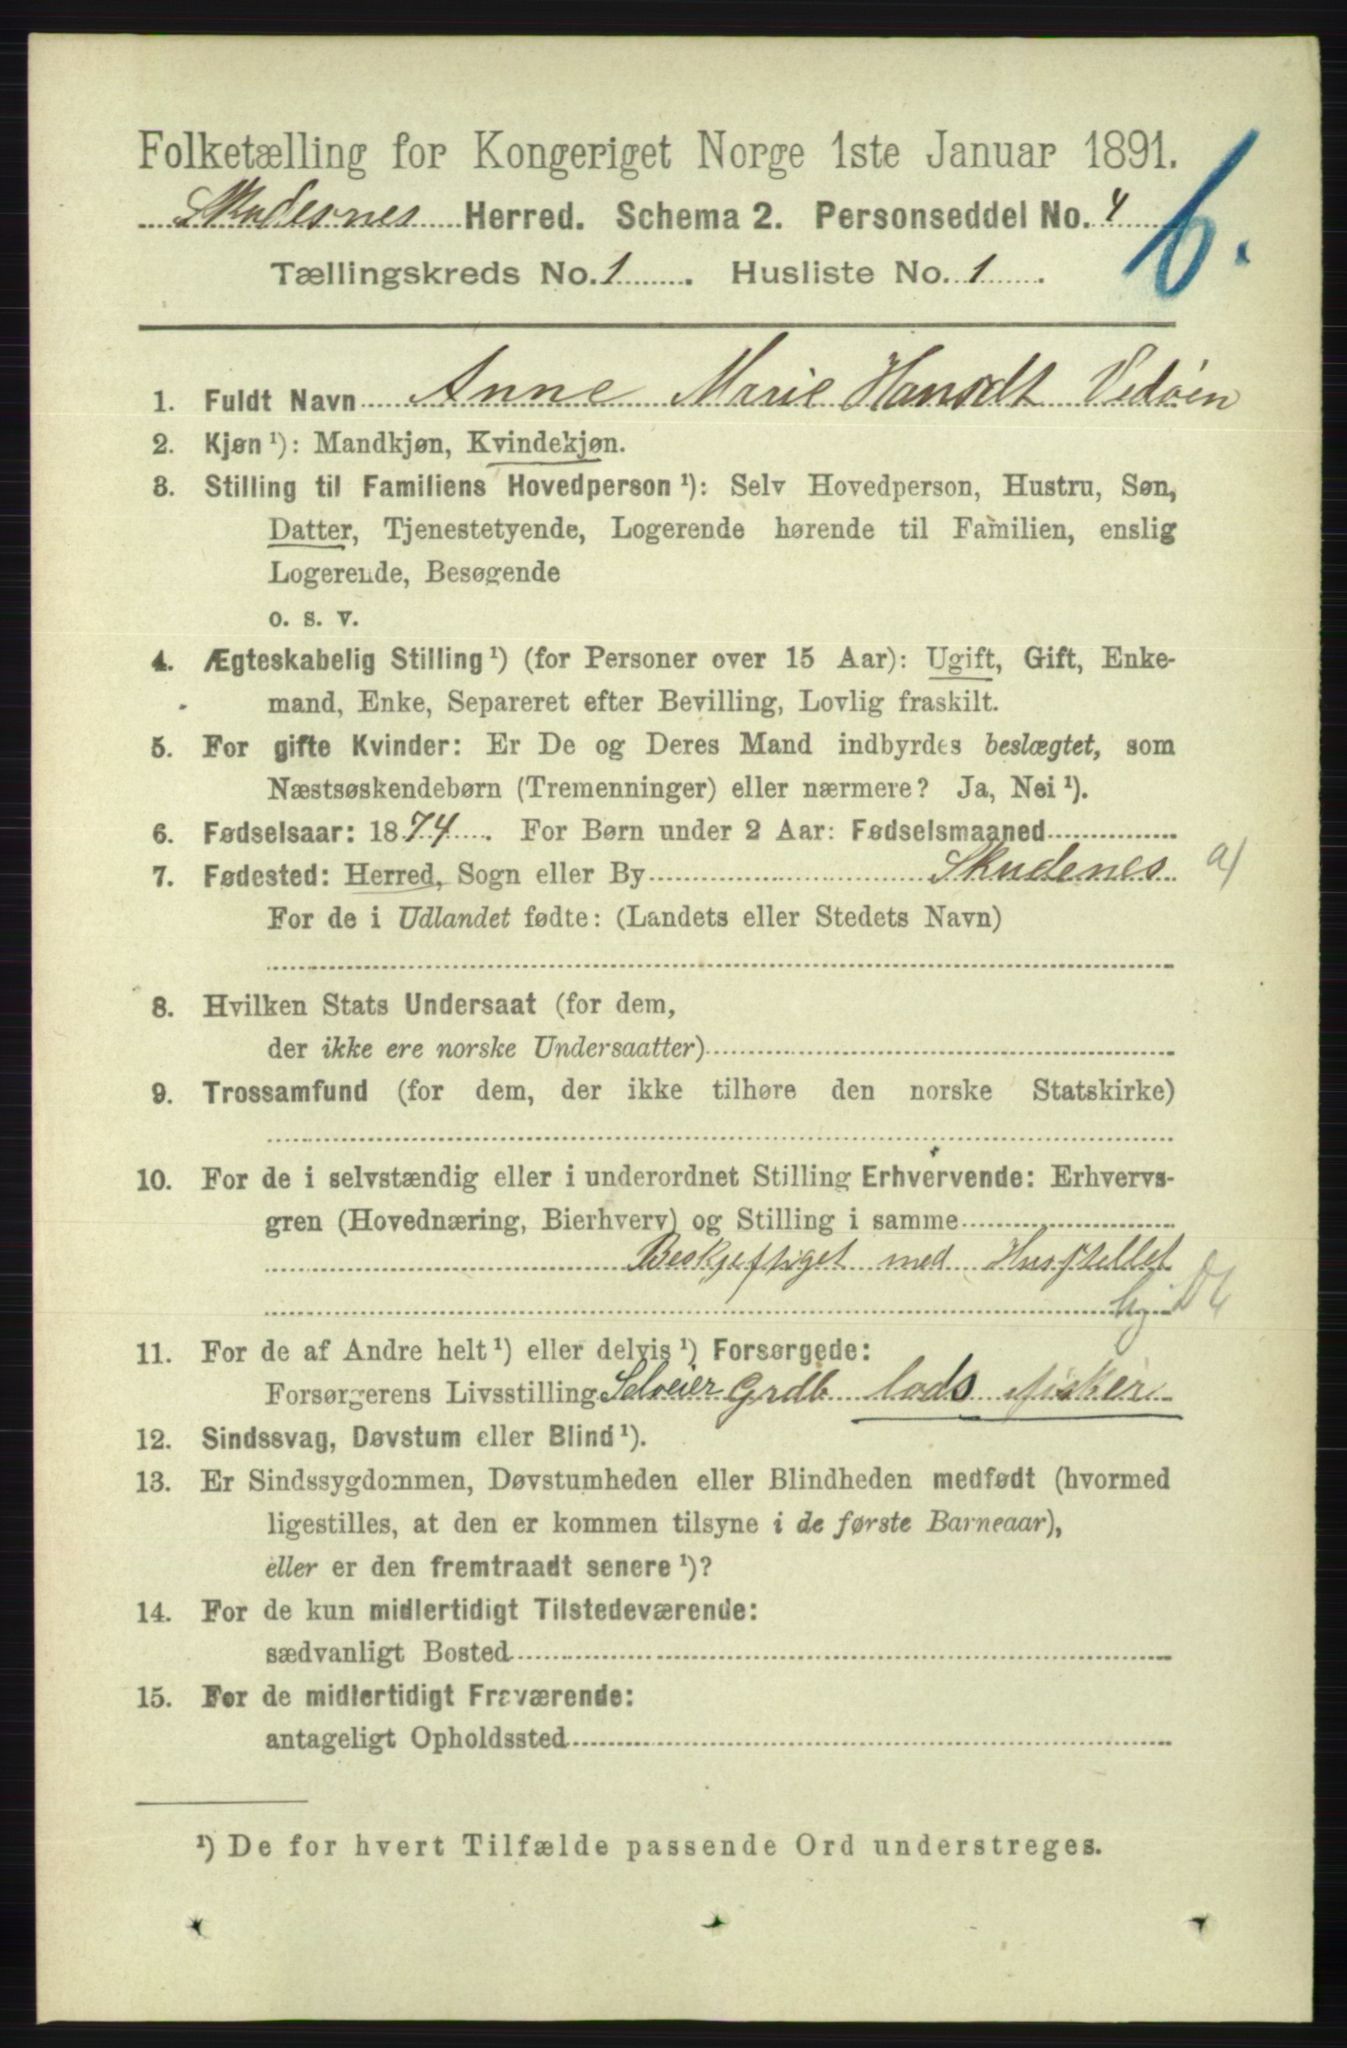 Folketælling for Kongeriget Norge 1ste Januar 1891.
6.
Skudesnes Herred. Schema 2. Personseddel No. 4
Tællingskreds No. 1. Husliste No. 1.
1. Fuldt Navn Anne Marie Hansdt Vedøen
2. Kjøn ¹): Mandkjøn, Kvindekjøn.
3. Stilling til Familiens Hovedperson ¹): Selv Hovedperson, Hustru, Søn,
Datter, Tjenestetyende, Logerende hørende til Familien, enslig
Logerende, Besøgende
o. s. v.
4. Ægteskabelig Stilling ¹) (for Personer over 15 Aar): Ugift, Gift, Enke-
mand, Enke, Separeret efter Bevilling, Lovlig fraskilt.
5. For gifte Kvinder: Er De og Deres Mand indbyrdes beslægtet, som
Næstsøskendebørn (Tremenninger) eller nærmere? Ja, Nei ¹).
6. Fødselsaar: 1874. For Børn under 2 Aar: Fødselsmaaned
7. Fødested: Herred, Sogn eller By Skudenes a/
For de i Udlandet fødte: (Landets eller Stedets Navn)
8. Hvilken Stats Undersaat (for dem,
der ikke ere norske Undersaatter)
9. Trossamfund (for dem, der ikke tilhøre den norske Statskirke)
10. For de i selvstændig eller i underordnet Stilling Erhvervende: Erhvervs-
gren (Hovednæring, Bierhverv) og Stilling i samme
Beskjeftiget med Husstellet
11. For de af Andre helt ¹) eller delvis ¹) Forsørgede:
Forsørgerens Livsstilling Selveier Grdb lods fisker
12. Sindssvag, Døvstum eller Blind ¹).
13. Er Sindssygdommen, Døvstumheden eller Blindheden medfødt (hvormed
ligestilles, at den er kommen tilsyne i de første Barneaar),
eller er den fremtraadt senere ¹)?
14. For de kun midlertidigt Tilstedeværende:
sædvanligt Bosted
15. For de midlertidigt Fraværende:
antageligt Opholdssted
¹) De for hvert Tilfælde passende Ord understreges.